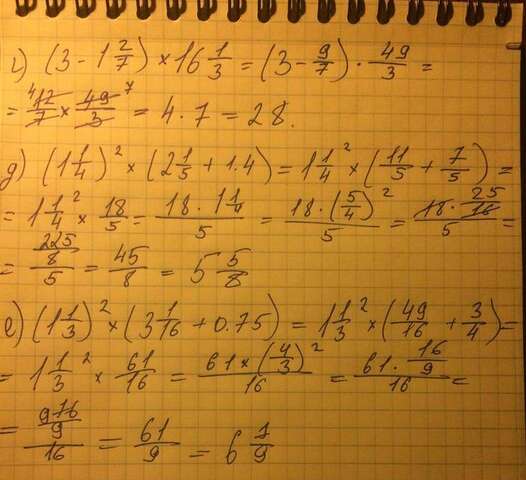 г) (3 - 1 2/7) × 16 1/3 = (3 - 9/7) · 49/3 =
= 12/7 × 49/3 = 4 · 7 = 28.
д) (1 1/4)² × (2 1/5 + 1.4) = 1 1/4² × (11/5 + 7/5) =
= 1 1/4² × 18/5 = (18 · 1 1/4)/5 = (18 · (5/4)²)/5 = (18 · 25/16)/5 =
= (225/8)/5 = 45/8 = 5 5/8
е) (1 1/3)² × (3 1/16 + 0.75) = 1 1/3² × (49/16 + 3/4) =
= 1 1/3² × 61/16 = (61 × (4/3)²)/16 = (61 · 16/9)/16 =
= (976/9)/16 = 61/9 = 6 7/9